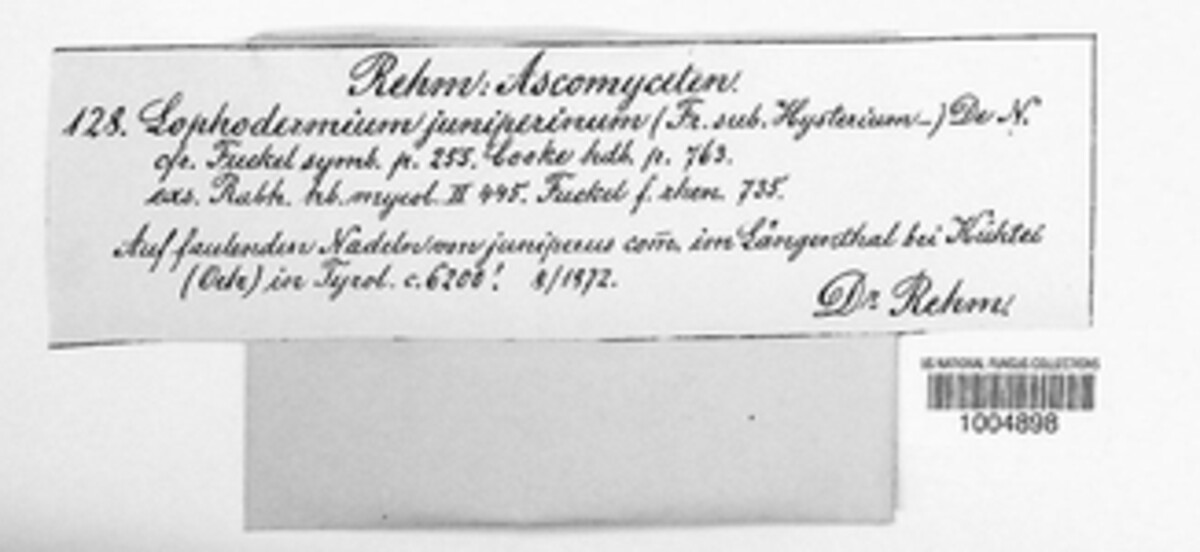 Rehm: Ascomyceten.
128. Lophodermium juniperinum (Fr. sub. Hysterium-) De N.
cfr. Fuckel symb. p. 255. Cooke hdb. p. 763.
exs. Rabh. hb. mycol. III 445. Fuckel f. rhen. 735.
Auf faulenden Nadeln von juniperus com̅. im Längenthal bei Kühtei
(Oetz) in Tyrol. c. 6200'. 8/1872.
Dr. Rehm.
US NATIONAL FUNGUS COLLECTIONS
1004898